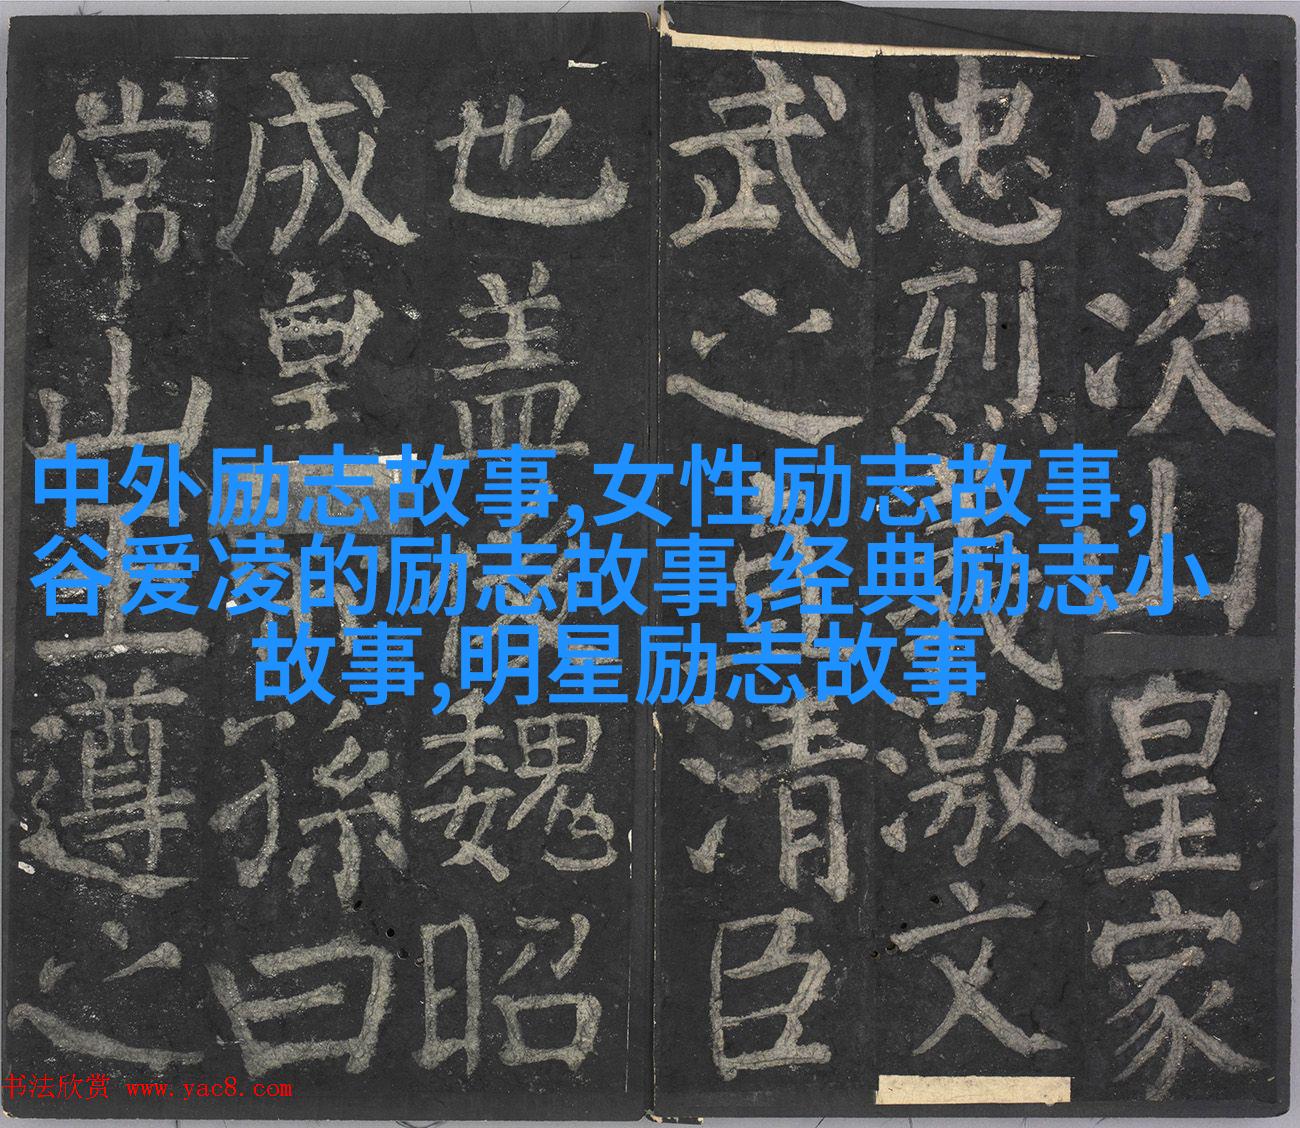 字次山皇家
忠烈義激文
武之直清臣
也盖後魏昭
成皇帝孫曰
常山王遵之
中外励志故事,女性励志故事,
谷爱凌的励志故事,经典励志小
故事,明星励志故事
书法欣赏 www.yac8.com